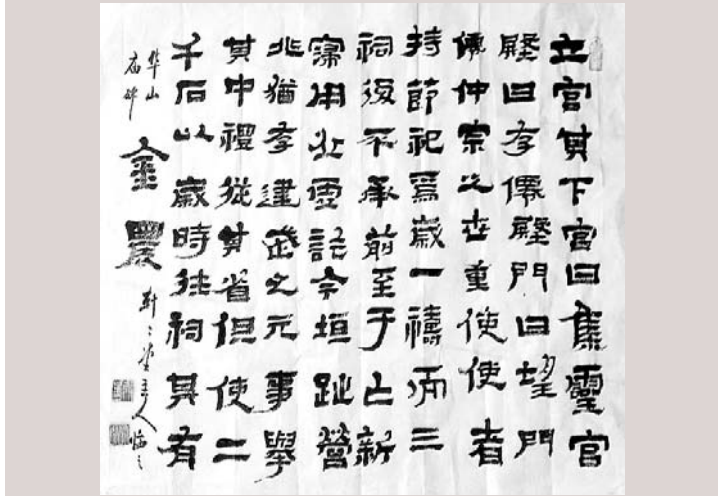 立宮其下宮曰集靈宮
殿曰存僊殿門曰望門
僊仲宗之世重使使者
持節祀焉歲一禱而三
祠後不承前至于亡新
寖用丘虛訖今垣趾營
兆猶存建武之元事舉
其中禮從其省但使二
千石以歲時往祠其有
华山
庙碑
金農
堂主人臨之